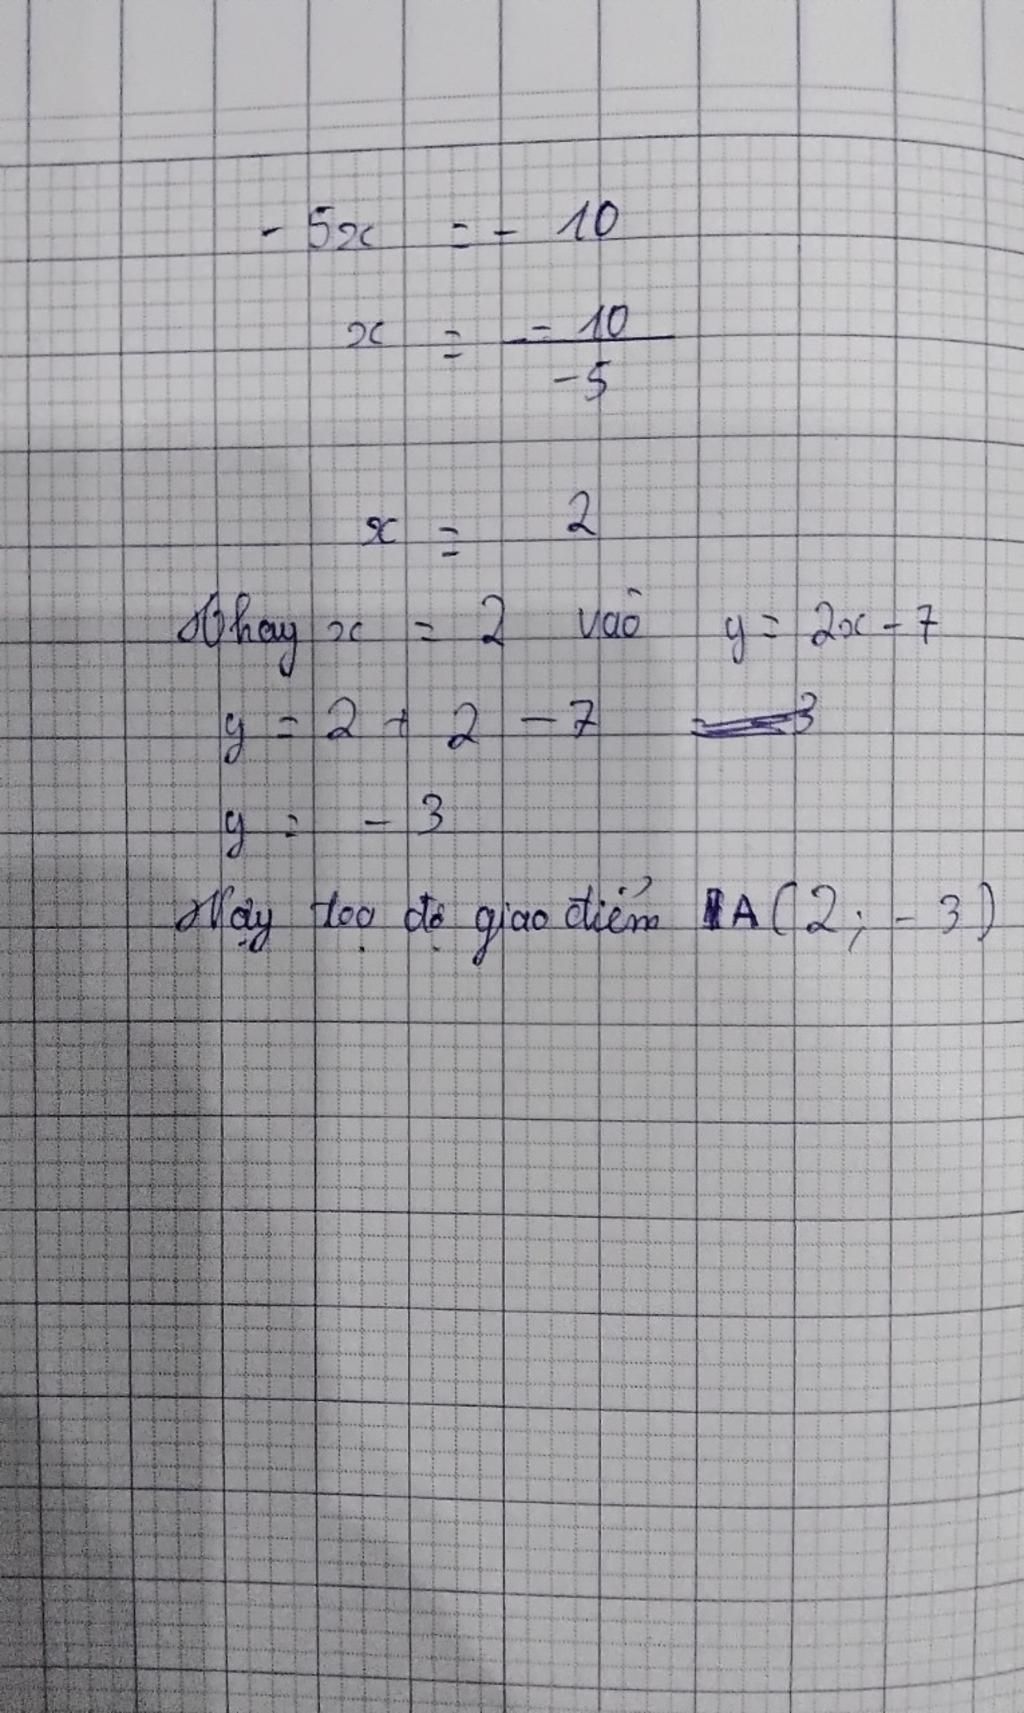 - 5x = - 10
x = - 10 / -5
x = 2
Thay x = 2 vào y = 2x - 7
y = 2 + 2 - 7
y = - 3
Vậy toạ độ giao điểm A (2; - 3)